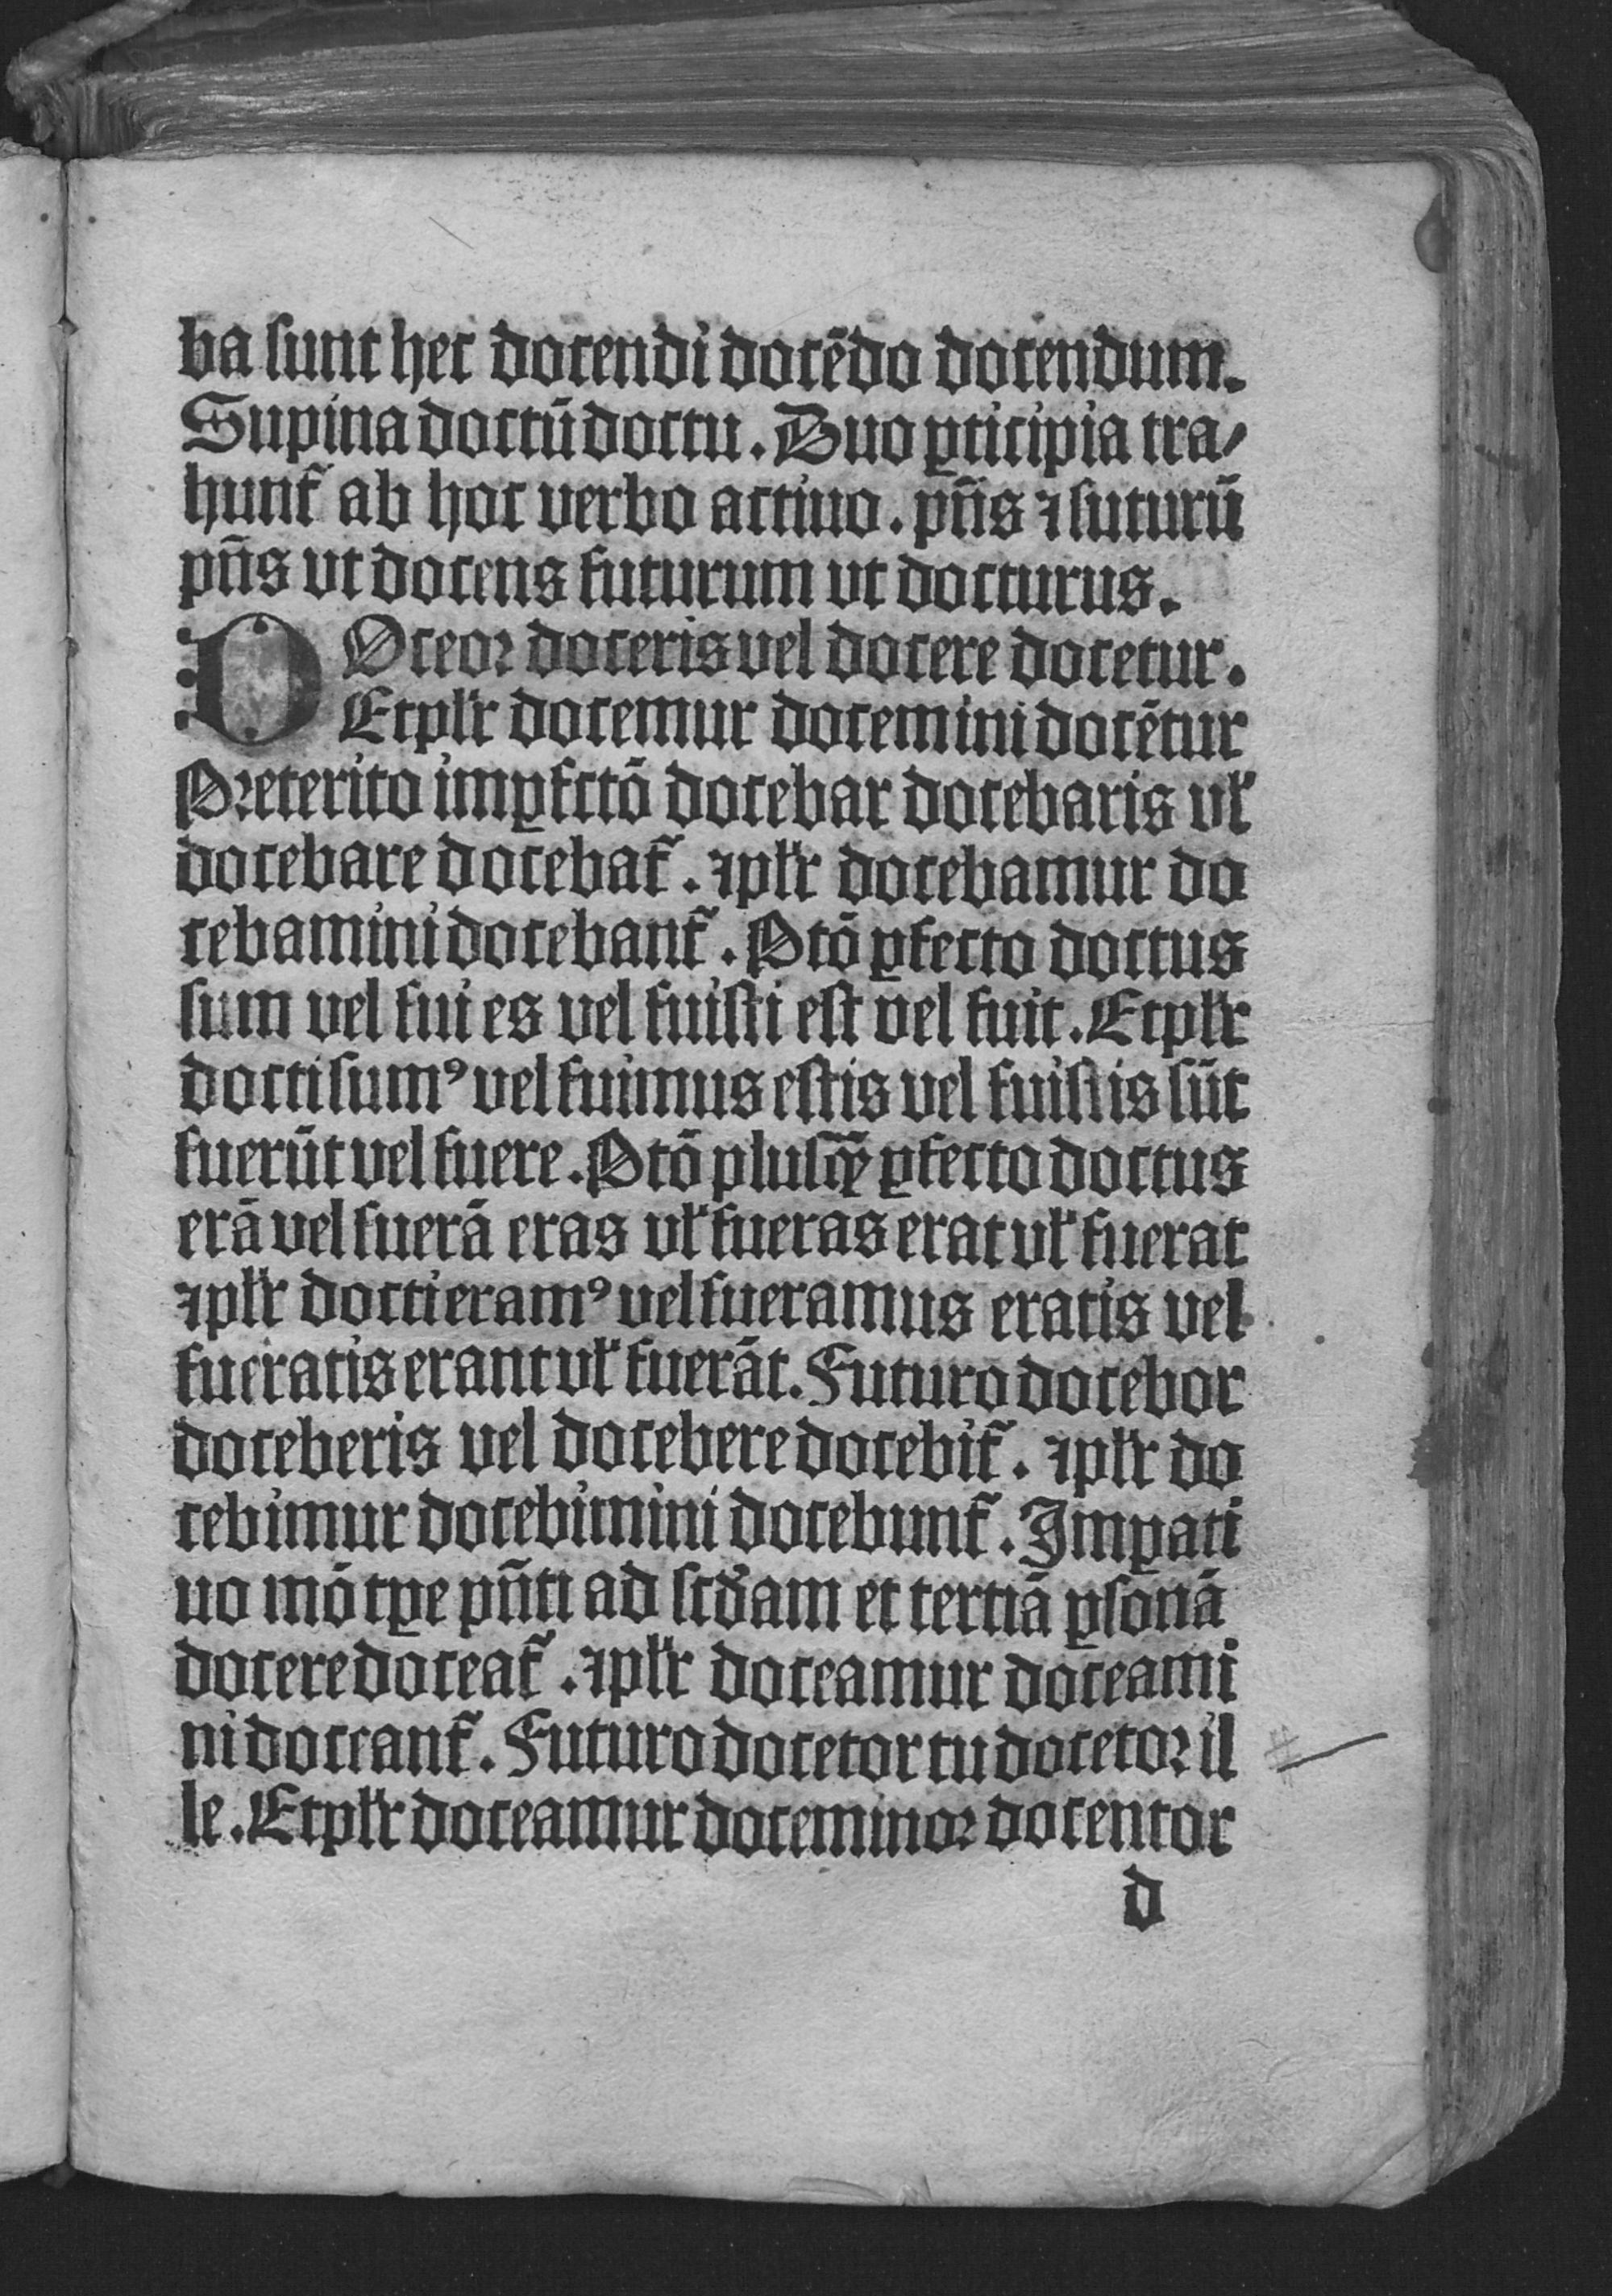 ba sunt hec docendi docēdo docendum.
Supina doctū doctu. Duo ꝑticipia tra/
hunt᷑ ab hoc verbo actiuo. pn̄s ⁊ futurū
pn̄s vt docens futurum vt docturus.
DOceoꝛ doceris vel docere docetur.
Et pl̓r docemur docemini docētur
Pꝛeterito imꝑfctō docebar docebaris vl̓
docebare docebat᷑. ⁊ pl̓r docebamur do
cebamini docebant᷑. Ptō ꝑfecto doctus
sum vel fui es vel fuisti est vel fuit. Et pl̓r
docti sumꝰ vel fuimus estis vel fuistis sūt
fuerūt vel fuere. Ptō plusꝙ̄ ꝑfecto doctus
erā vel fuerā eras vl̓ fueras erat vl̓ fuerat
⁊ pl̓r docti eramꝰ vel fueramus eratis vel
fueratis erant vl̓ fuerāt. Futuro docebor
doceberis vel docebere docebit᷑. ⁊ pl̓r do
cebimur docebimini docebunt᷑. Imꝑati
uo mō tꝑe pn̄ti ad scd̓am et tertiā ꝑsonā
docere doceat᷑. ⁊ pl̓r doceamur doceami
ni doceant᷑. Futuro docetor tu docetoꝛ il
le. Et pl̓r doceamur doceminoꝛ docentor
d